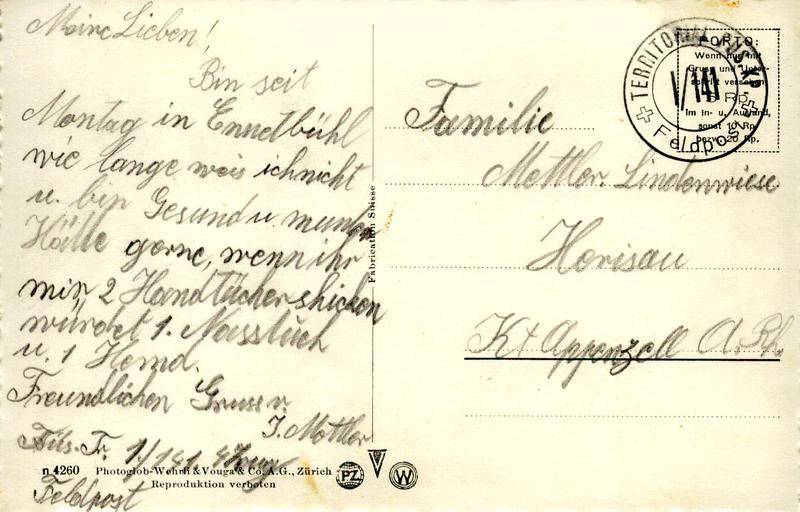 Meine Lieben!
Bin seit
Montag in Ennetbühl
wie lange weis ich nicht
u. bin Gesund u. munter
Hätte gerne, wenn ihr
mir, 2 Handtücher shicken
würdet 1. Nasstuch
u. 1 Hemd.
Freundlichen Gruss v.
J. Mettler
Füs. Tr. 1/141
Feldpost
Familie
Mettler. Lindenwiese
Herisau
Kt Appenzell A. Rh.
TERRITORIAL FÜS. KP.
I/141
Feldpost
PORTO:
Wenn nur mit
Gruss und Unter-
schrift versehen
5 Rp.
Im in- u. Ausland,
sonst 10 Rp.
bezw. 20 Rp.
Fabrication Suisse
n 4260 Photoglob-Wehrli & Vouga & Co. A.G., Zürich
Reproduktion verboten
PZ
V
W